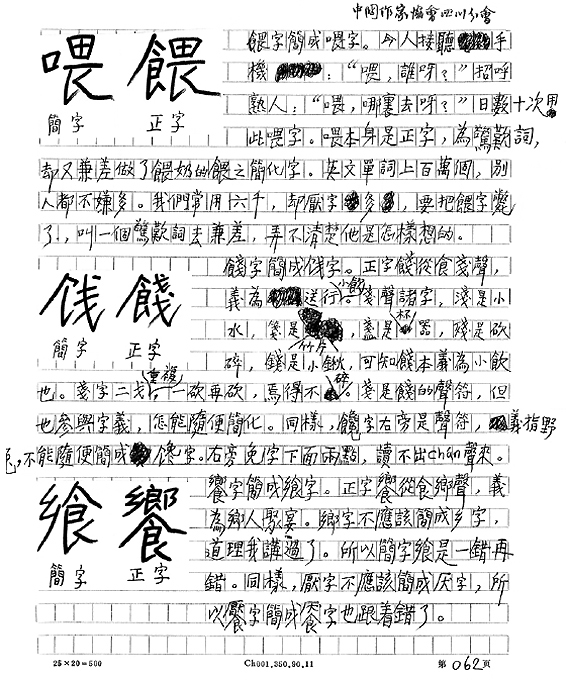 中国作家協會四川分會
喂 餵
簡字 正字
餵字簡成喂字。今人接聽手
機：“喂，誰呀？”招呼
熟人：“喂，哪裏去呀？”日數十次用
此喂字。喂本身是正字，為驚歎詞，
却又兼差做了餵奶的餵之簡化字。英文單詞上百萬個，別
人都不嫌多。我們常用才六千，却厭字多，要把餵字斃
了，叫一個驚歎詞去兼差，弄不清楚他是怎樣想的。
饯 餞
簡字 正字
餞字簡成饯字。正字餞從食戔聲，
義為送行小飲。戔聲諸字，淺是小
水，箋是小竹片，盞是小杯器，殘是砍
碎，錢是小鍬，可知餞本義為小飲
也。戔字二戈重複，一砍再砍，焉得不碎。戔是餞的聲符，但
也參與字義，怎能隨便簡化。同樣，饞字右旁是聲符，義指野
兔，不能隨便簡成馋字。右旁免字下面兩點，讀不出chán聲來。
飨 饗
簡字 正字
饗字簡成飨字。正字饗從食鄉聲，義
為鄉人聚宴。鄉字不應該簡成乡字，
道理我講過了。所以簡字飨是一錯再
錯。同樣，厭字不應該簡成厌字，所
以饜字簡成餍字也跟着錯了。
25×20=500 Ch001.350.90.11 第062页